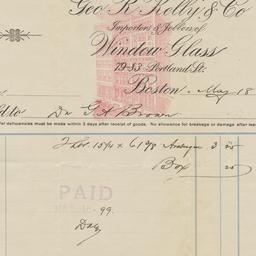 Geo. R. Kelly & Co
Importers & Jobbers of
Window Glass
79-83 Portland St.
Boston, May 18
ld to Dr G A Brown
for deficiencies must be made within 3 days after receipt of goods. No allowance for breakage or damage after leav
2 Lts 15/0 x 61 7/8 Arabesque 3 50
Box 25
PAID
99.